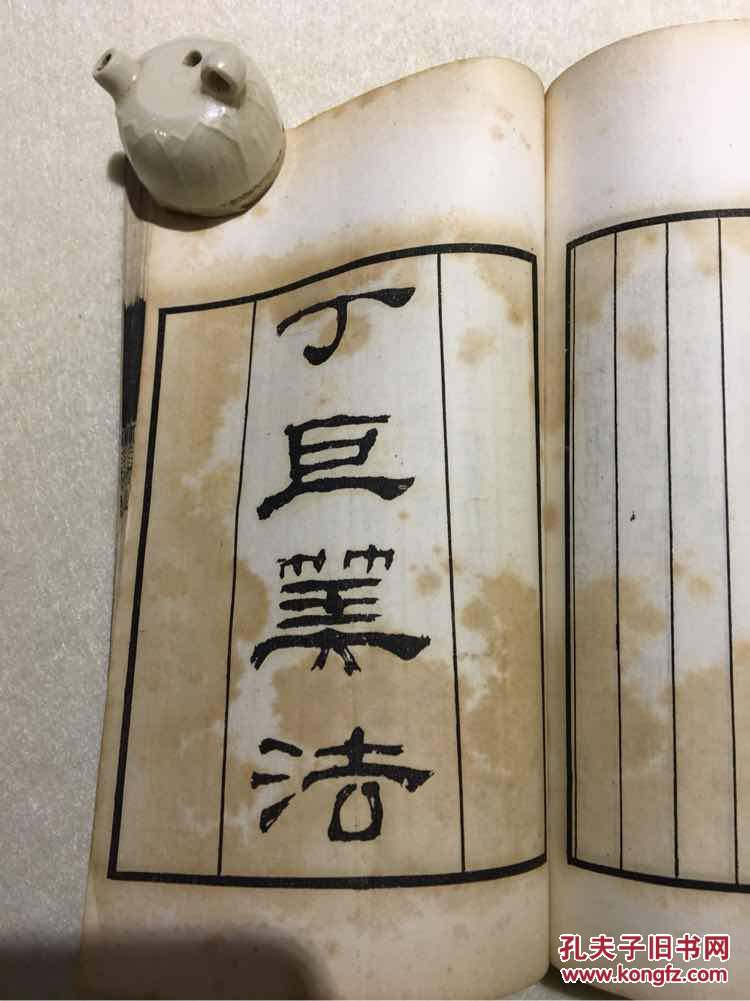 丁巨筭法
孔夫子旧书网
www.kongfz.com